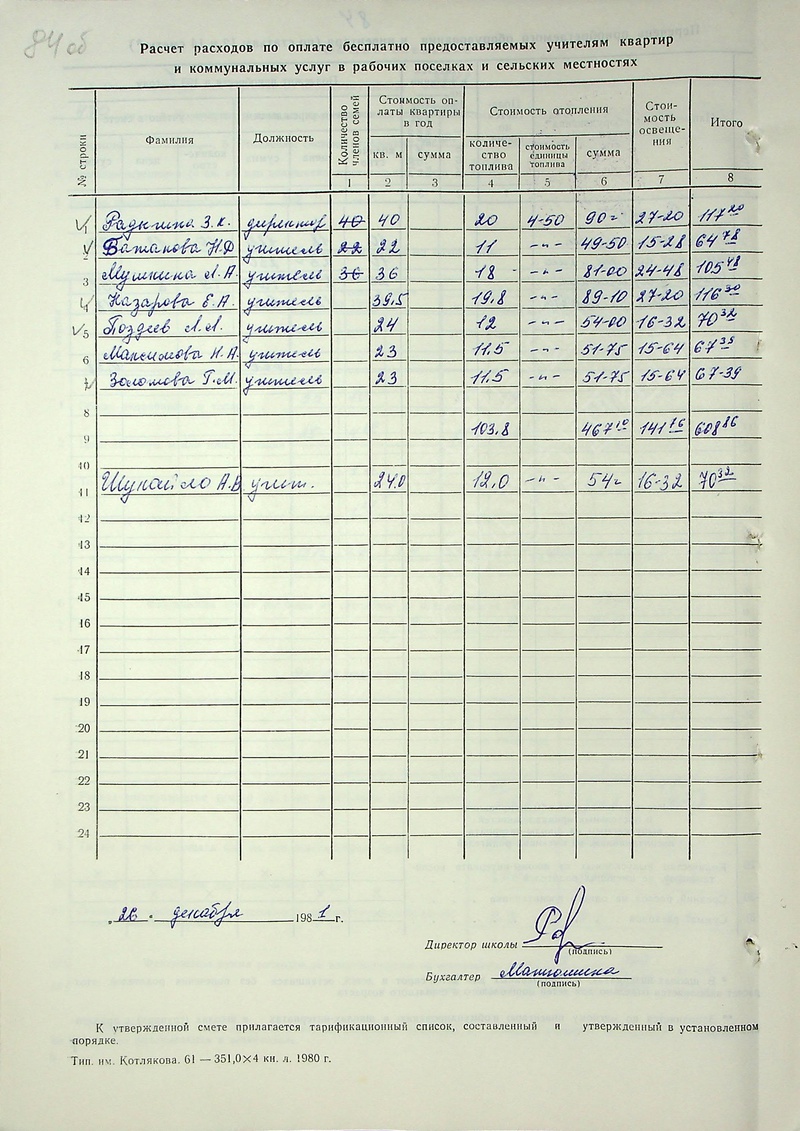 84 об
Расчет расходов по оплате бесплатно предоставляемых учителям квартир
и коммунальных услуг в рабочих поселках и сельских местностях
№ строки Фамилия Должность Количество членов семей Стоимость оплаты квартиры в год Стоимость отопления Стоимость освещения Итого
кв. м сумма количество топлива стоимость единицы топлива сумма
1 2 3 4 5 6 7 8
З. К. директор 40 40 20 4-50 90= 27-20 117 20
Ватанова Н.Ф учитель 22 22 11 -"- 49-50 15-28 64 78
3 Мушкина А. А. учитель 36 36 18 -"- 81-00 24-48 105 48
4 Назарова Е. А. учитель 39,5 19,8 -"- 89-10 27-20 116 30
5 Поздеев Л. Л. учитель 24 12 -"- 54-00 16-32 70 32
6 Максимова Н. А. учитель 23 11.5 -"- 51-75 15-64
Г. М. учитель 23 11.5 -"- 51-75 15-64 67-39
8
9 103,8 467 10 141 76 608 86
10
11 А.В учит. 24.0 12,0 -"- 54= 16-32 70 32
12
13
14
15
16
17
18
19
20
21
22
23
24
„26" декабря 1981 г.
Директор школы
(подпись)
Бухгалтер
(подпись)
К утвержденной смете прилагается тарификационный список, составленный и утвержденный в установленном
порядке.
Тип. им. Котлякова. 61 — 351,0×4 кн. л. 1980 г.